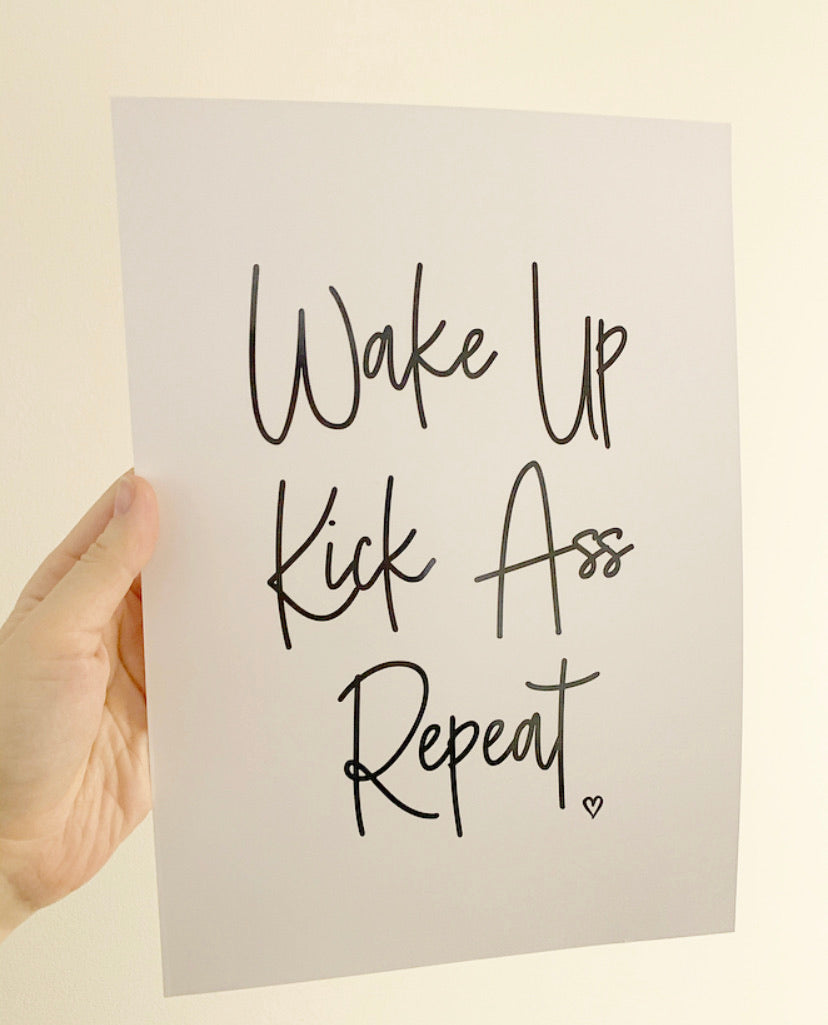 Wake Up
Kick Ass
Repeat